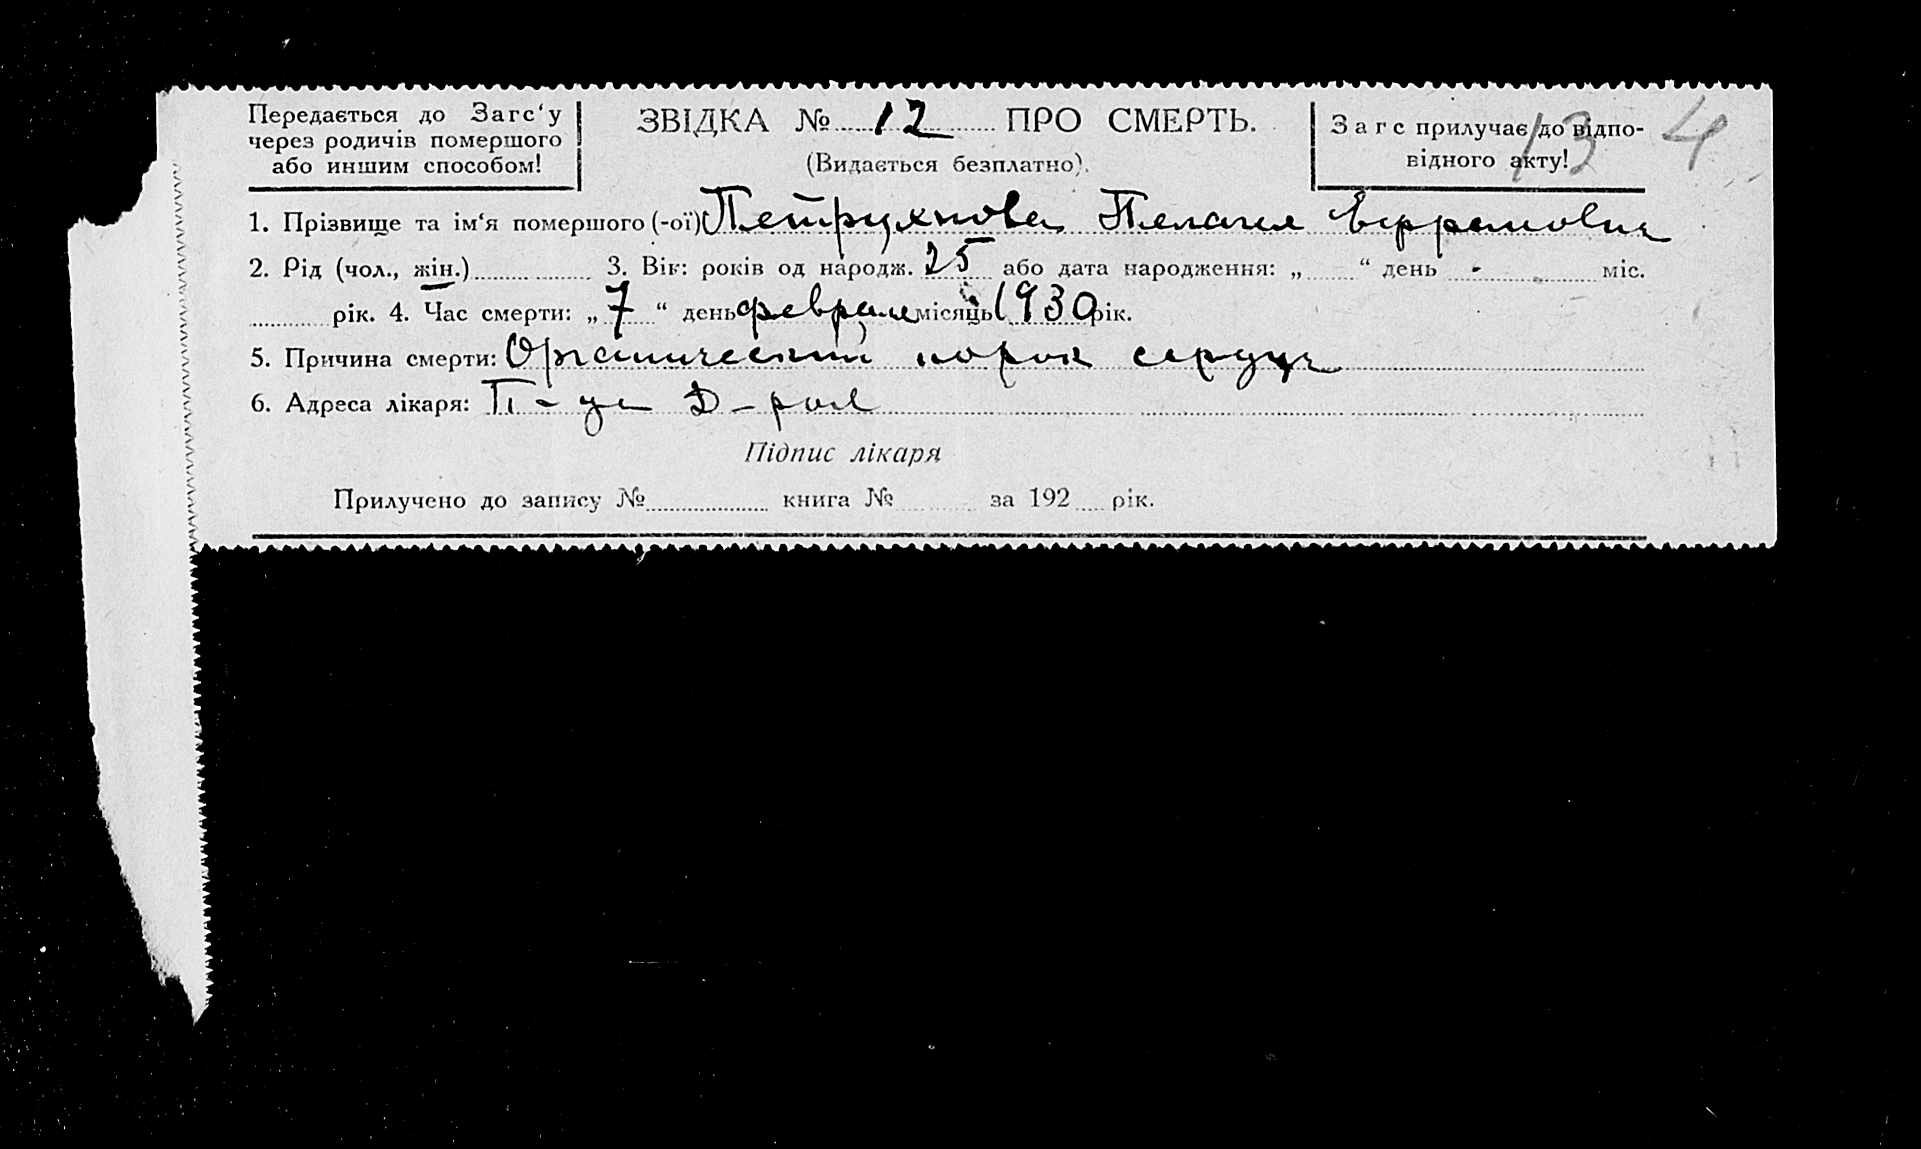 Передається до Загс‘у
через родичів помершого
або иншим способом!
ЗВІДКА № 12 ПРО СМЕРТЬ.
(Видається безплатно).
Загс прилучає до відпо-
відного акту!
13 4
1. Прізвище та ім‘я помершого (-ої) Петрухнова Пелагея
2. Рід (чол., жін.) 3. Вік: років од народж. 25 або дата народження: „ “ день - міс.
рік. 4. Час смерти: „ 7 “ день февраля місяць 1930 рік.
5. Причина смерти: Органический порок сердца
6. Адреса лікаря:
Підпис лікаря
Прилучено до запису № книга № за 192 рік.